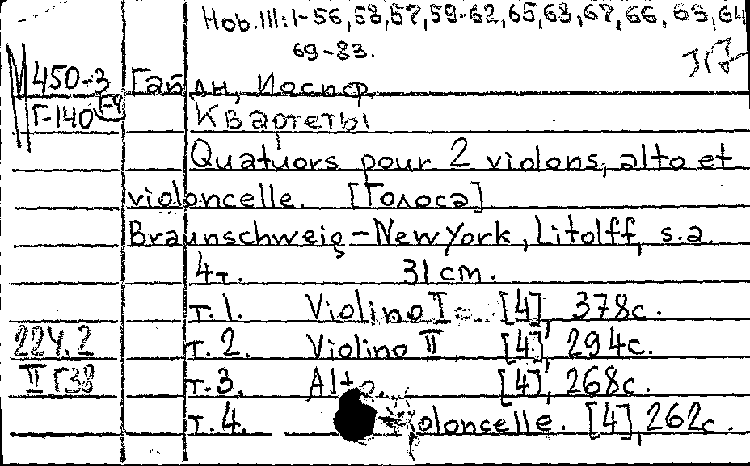 Hob.III:1-56,58,57,59-62,65,68,67,66,63,64
69-83.
М450-3 Гайдн, Иосиф.
Г-140
Квартеты
Quatuors pour 2 violons, alto et
violoncelle. [Голоса].
Braunschweig-New York, Litolff, s.a.
4т. 31 cm.
т.1. Violino I [4], 378с.
224.2 т.2. Violino II [4], 294с.
II Г38 т.3. Alto. [4], 268с.
т.4. oloncelle. [4], 262с.